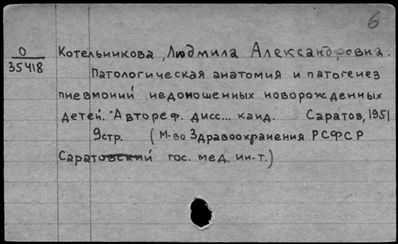 6
О
35418
Котельникова, Людмила Александровна.
Патологическая анатомия и патогенез
пневмоний недоношенных новорожденных
детей. Автореф. дисс... канд. Саратов, 1951
9стр. (М-во Здравоохранения РСФСР
Саратовский гос. мед. ин-т.)